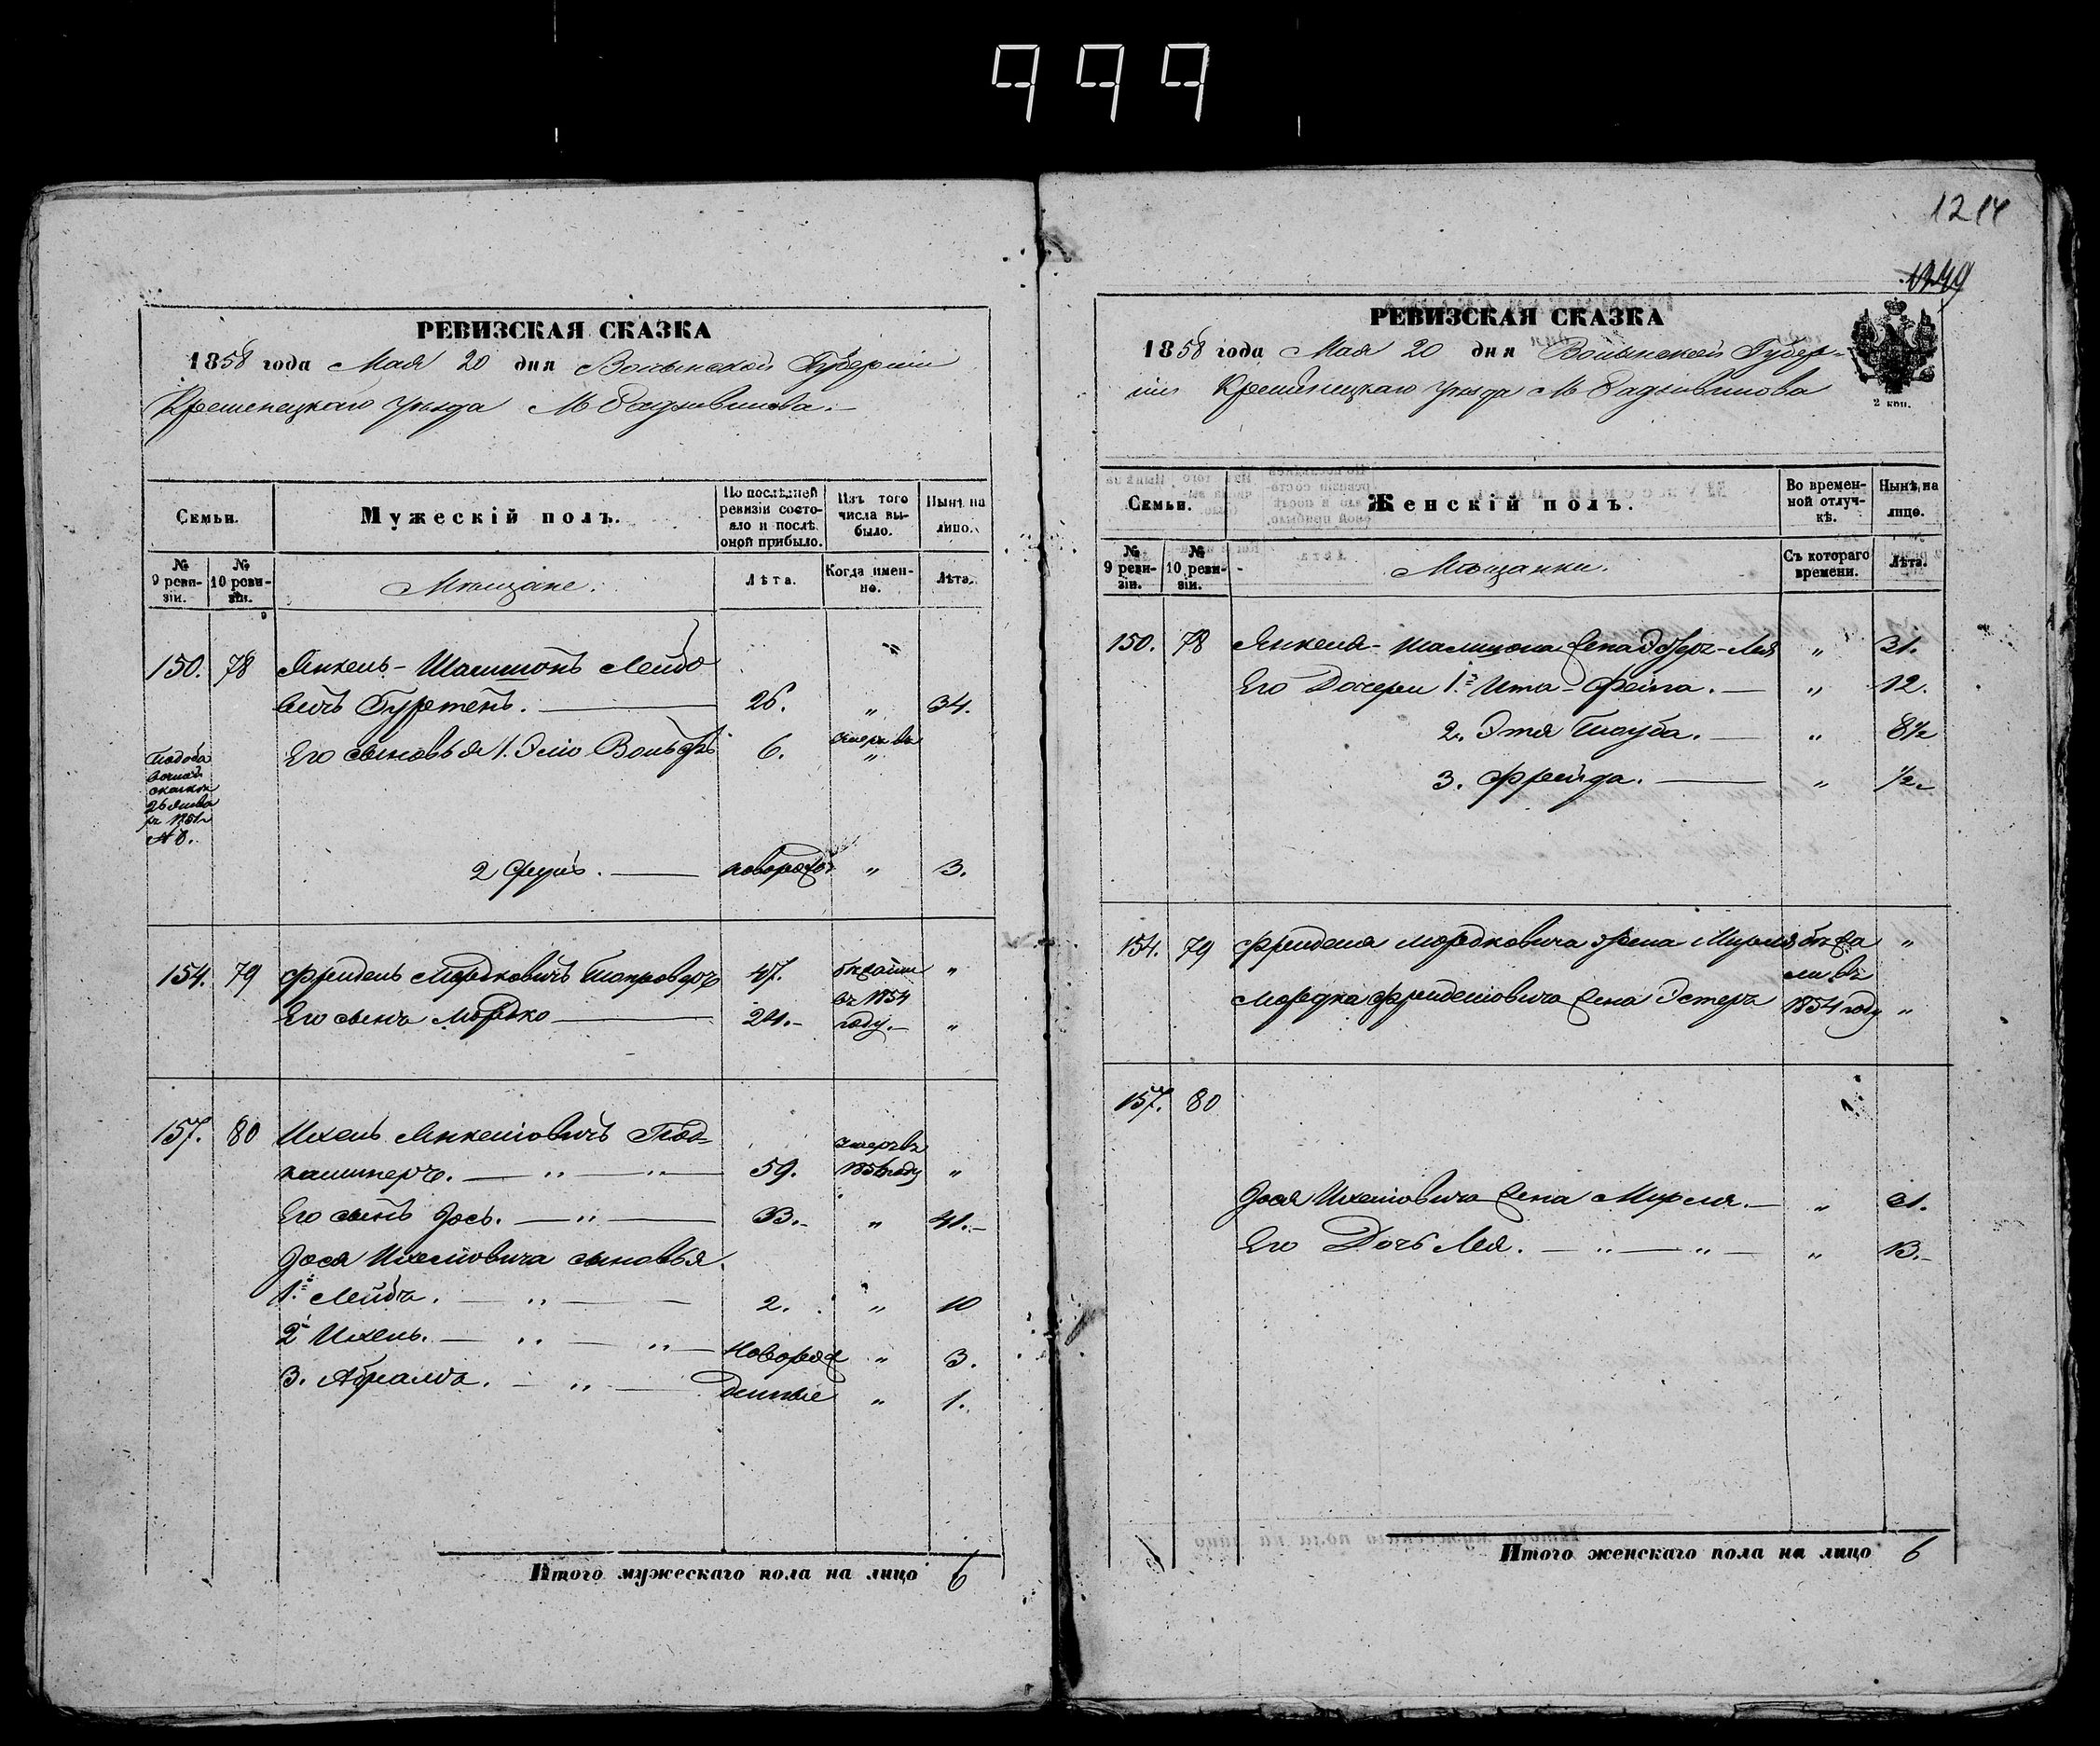 999
1214
1249
РЕВИЗСКАЯ СКАЗКА
1858 года Мая 20 дня Волынской Губерніи
Кременецкаго уѣзда М Радзивилова.
Семьи.
Мужескій полъ.
По послѣдней ревизіи состояло и послѣ оной прибыло.
Изъ того числа выбыло.
Нынѣ на лицо.
№ 9 ревизіи.
№ 10 ревизіи.
Мѣщане.
Лѣта.
Когда именно.
Лѣта.
150. 78 Янкель-Шалимонъ Лейбо
вичъ Гуретенъ. 26. " 34.
Его сыновья 1. Элio Вольфъ 6. умеръ въ "
26 Января 1851
№ 8.
2 Фроимъ. новорожд " 3.
154. 79 Фридель Мордковичъ 47. бѣжали "
Его сынъ Мордко 24. въ 1854 году. "
157. 80 Ихель Янкелiовичъ Под=
каминеръ. 59. умеръ въ 1856 году "
Его сынъ Іось. 33. " 41.
Іося Ихелiовича сыновья.
1. Лейба. 2. " 10
2 Ихель. новорож " 3.
3. Абрамъ. денные " 1.
Итого мужескаго пола на лицо 6
РЕВИЗСКАЯ СКАЗКА
1858 года Мая 20 дня Волынской Губер-
ніи Кременецкаго уѣзда М Радзивилова
2 коп.
Семьи.
Женскій полъ.
Во временной отлучкѣ.
Нынѣ на лицо.
№ 9 ревизіи.
№ 10 ревизіи.
Мѣщанки.
Съ котораго времени.
Лѣта.
150. 78 Янкеля-Шалимона жена Лея " 31.
Его Дочери 1. Ита-Фейга. " 12.
2. Этя Тауба. " 8½
3. Фрейда. " ½
154. 79 Фриделя Мордковича жена Мирля бѣжа "
ли въ
Мордка Фриделiовича жена Эстеръ 1854 году "
157. 80
Іося Ихелiовича жена Мирля. "
Его Дочь Лея. " 13.
Итого женскаго пола на лицо 6